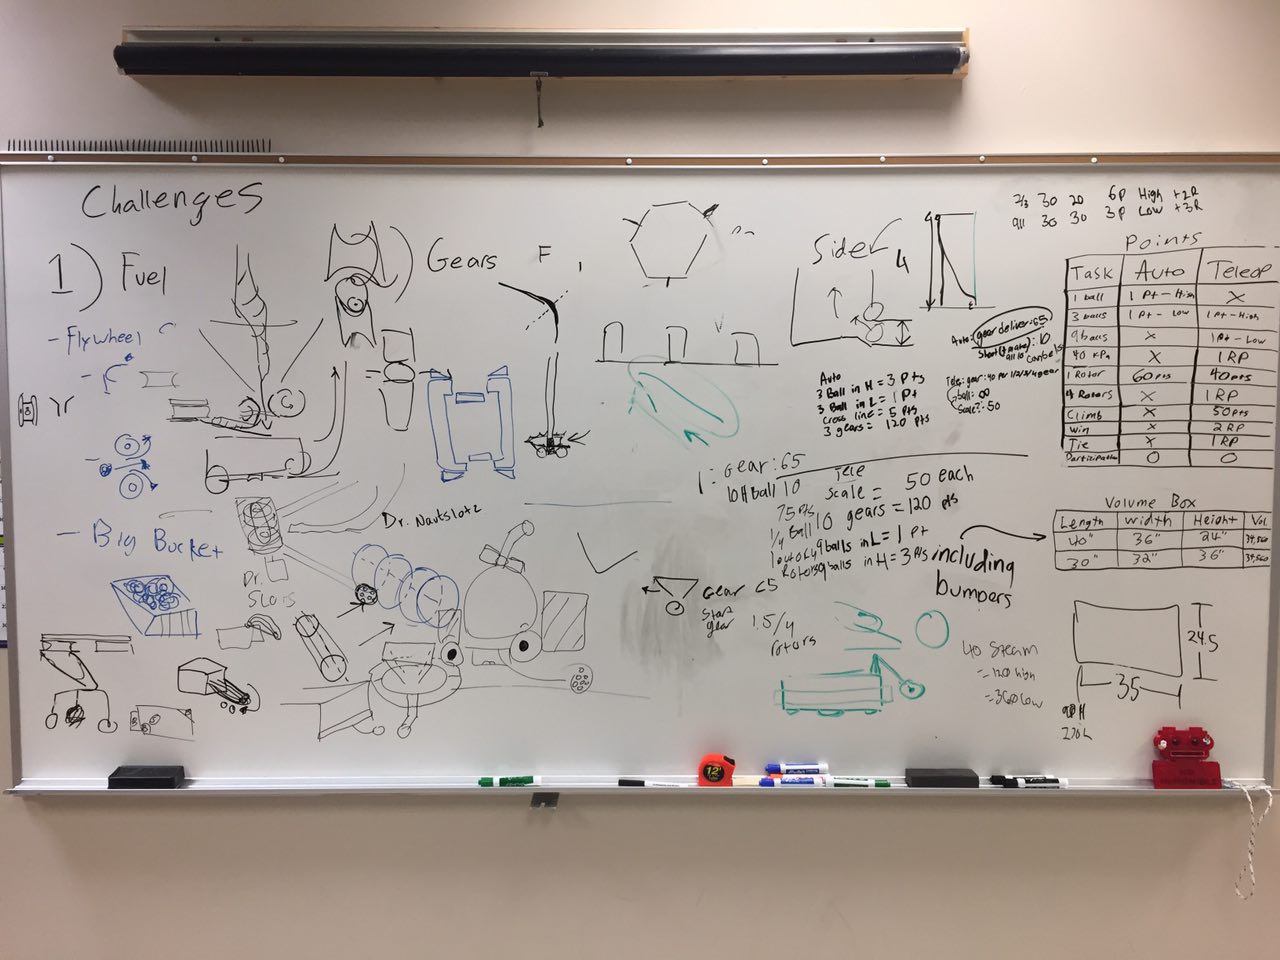 Challenges
1) Fuel
- Flywheel
- Big Bucket
) Gears
F
Dr. Nautslotz
Dr.
Slots
Sider
4
2/3 30 20 6P High +2R
9/11 30 30 3P Low +3R
Auto: gear deliver: 65
: 10
Tele: gear: 40 per 1/2/3/4 gear
ball: ∞
Scale?: 50
Auto
3 Ball in H = 3 Pts
3 Ball in L = 1 Pt
Cross line = 5 Pts
3 gears = 120 pts
1: Gear: 65
10 H Ball / 10
Tele
Scale = 50 each
10 gears = 120 pts
75 Pts
1/4 Ball
9 balls in L = 1 Pt
Rotors 9 balls in H = 3 Pts
including
bumpers
Gear
Start
gear
1.5/4
rotors
40 Steam
= 120 high
= 360 low
Points
Task Auto Teleop
1 ball 1 Pt - High X
3 balls 1 Pt - Low 1 Pt - High
9 balls X 1 Pt - Low
40 kPa X 1 RP
1 Rotor 60 pts 40 pts
4 Rotors X 1 RP
Climb X 50 pts
Win X 2 RP
Tie X 1 RP
Participation 0 0
Volume Box
Length Width Height Vol
40" 36" 24" 34,560
30" 32" 36" 34,560
24.5
35
90 H
270 L
12'